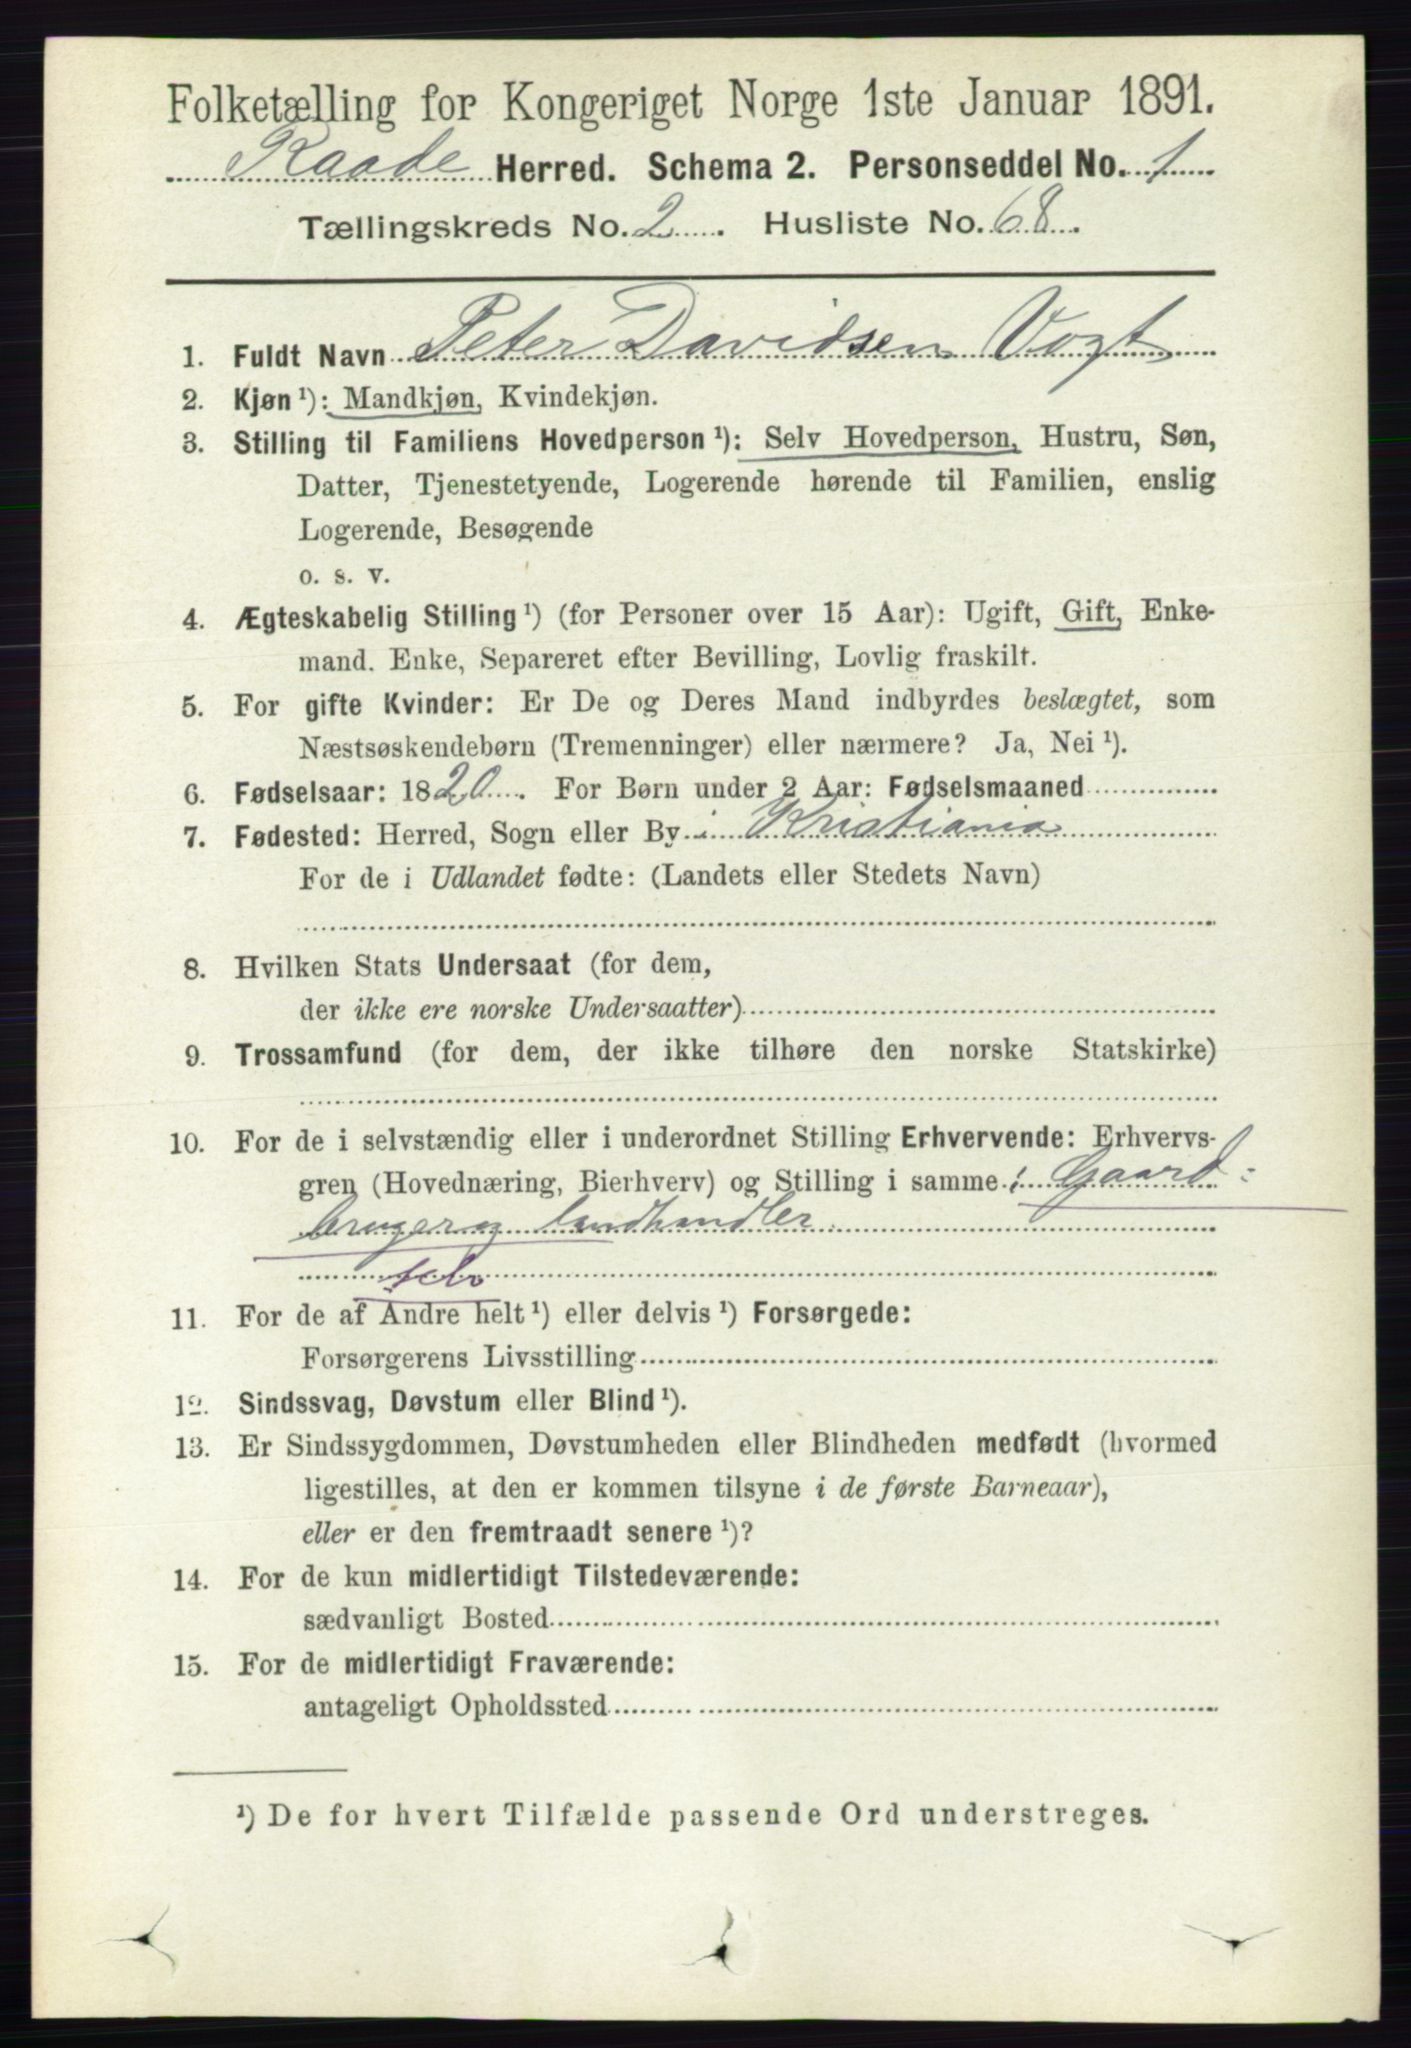 Folketælling for Kongeriget Norge 1ste Januar 1891.
Raade Herred. Schema 2. Personseddel No. 1
Tællingskreds No. 2. Husliste No. 68.
1. Fuldt Navn Peter Davidsen Vogt
2. Kjøn ¹): Mandkjøn, Kvindekjøn.
3. Stilling til Familiens Hovedperson ¹): Selv Hovedperson, Hustru, Søn,
Datter, Tjenestetyende, Logerende hørende til Familien, enslig
Logerende, Besøgende
o. s. v.
4. Ægteskabelig Stilling ¹) (for Personer over 15 Aar): Ugift, Gift, Enke-
mand. Enke, Separeret efter Bevilling, Lovlig fraskilt.
5. For gifte Kvinder: Er De og Deres Mand indbyrdes beslægtet, som
Næstsøskendebørn (Tremenninger) eller nærmere? Ja, Nei ¹).
6. Fødselsaar: 1820. For Børn under 2 Aar: Fødselsmaaned
7. Fødested: Herred, Sogn eller By i Kristiania
For de i Udlandet fødte: (Landets eller Stedets Navn)
8. Hvilken Stats Undersaat (for dem,
der ikke ere norske Undersaatter)
9. Trossamfund (for dem, der ikke tilhøre den norske Statskirke)
10. For de i selvstændig eller i underordnet Stilling Erhvervende: Erhvervs-
gren (Hovednæring, Bierhverv) og Stilling i samme: Gaard-
bruger og landhandler.
selv
11. For de af Andre helt ¹) eller delvis ¹) Forsørgede:
Forsørgerens Livsstilling
12. Sindssvag, Døvstum eller Blind ¹).
13. Er Sindssygdommen, Døvstumheden eller Blindheden medfødt (hvormed
ligestilles, at den er kommen tilsyne i de første Barneaar),
eller er den fremtraadt senere ¹)?
14. For de kun midlertidigt Tilstedeværende:
sædvanligt Bosted
15. For de midlertidigt Fraværende:
antageligt Opholdssted
¹) De for hvert Tilfælde passende Ord understreges.